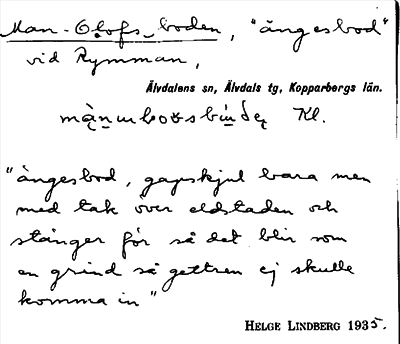 Man-Olofs-boden, "ängesbod"
vid Rymman,
Älvdalens sn, Älvdals tg, Kopparbergs län.
Kl.
"ängesbod, gapskjul bara men
med tak över eldstaden och
stänger för så det blir som
en grind så gettren ej skulle
komma in"
HELGE LINDBERG 1935.